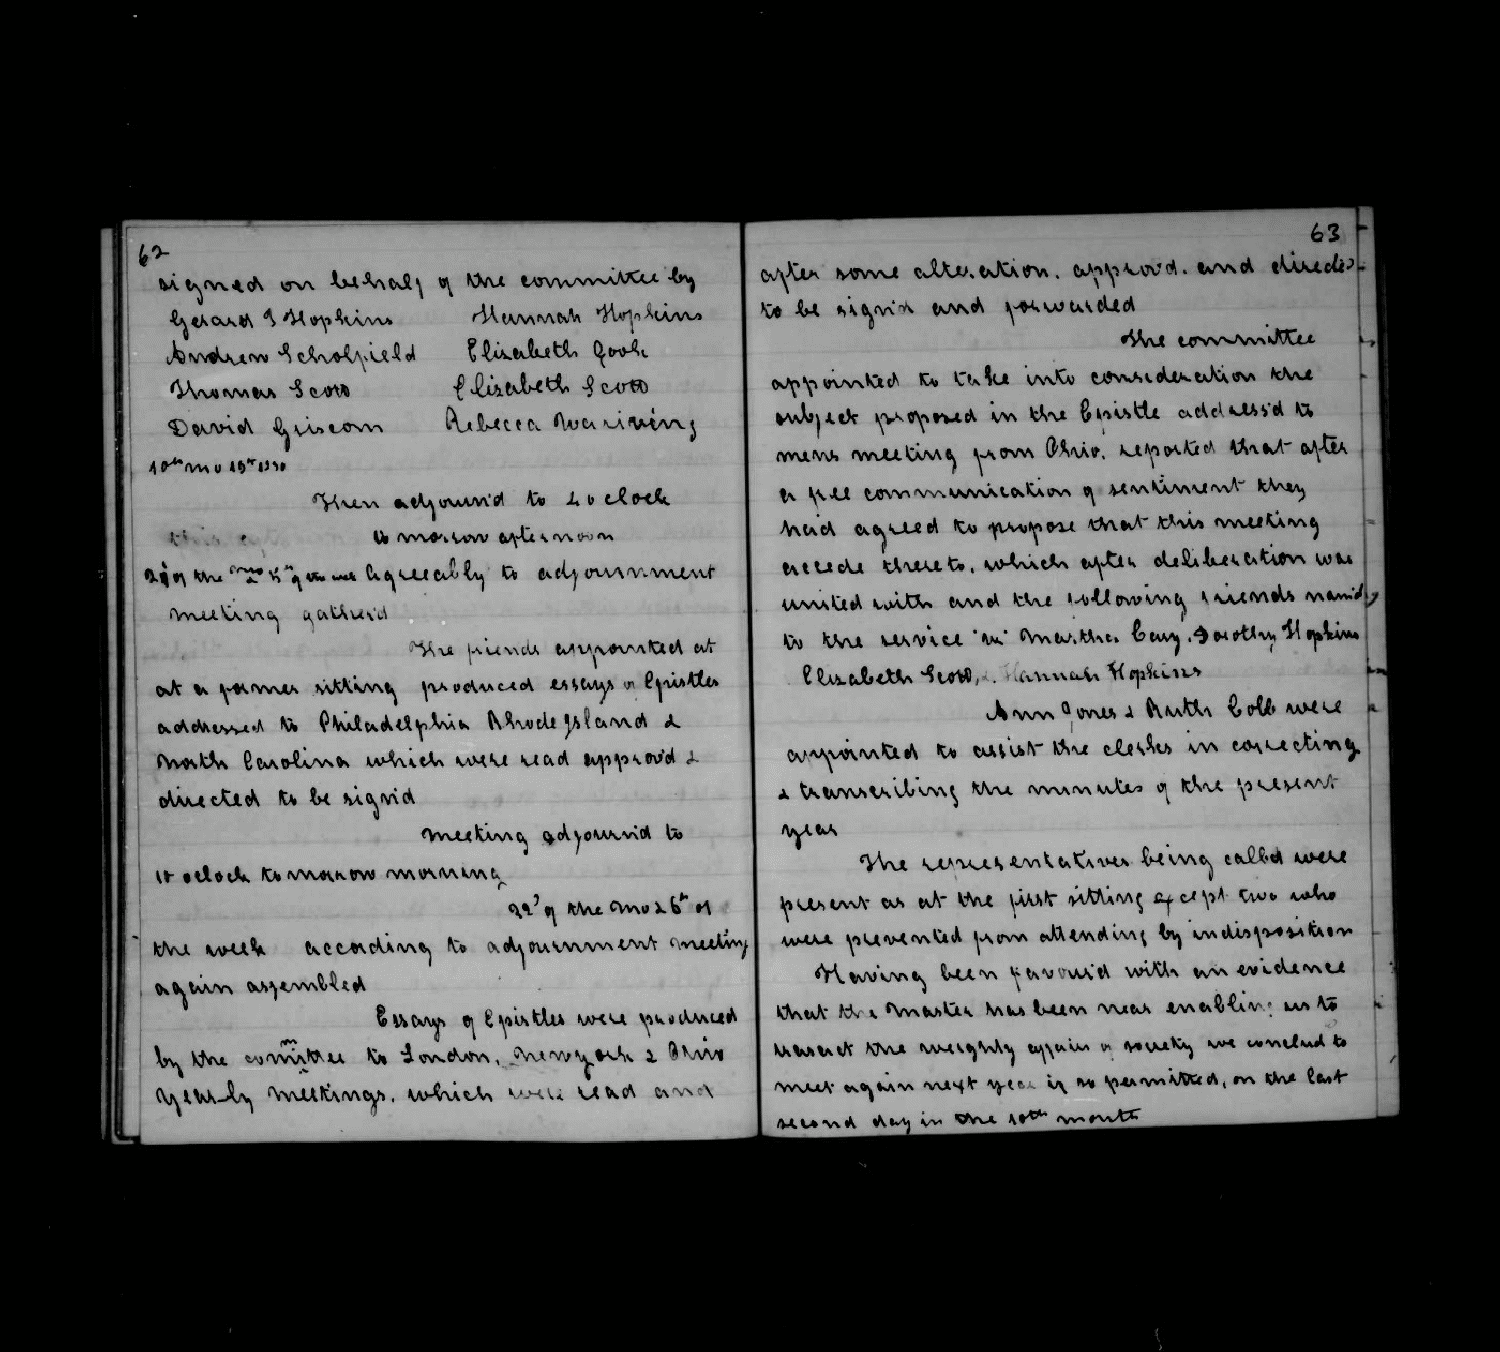 62
signed on behalf of the committee by
Gerard T Hopkins Hannah Hopkins
Andrew Scholfield Elizabeth Cook
Thomas Scott Elizabeth Scott
David Griscom Rebecca Wareing
10th mo 19th
Then adjourn'd to 4 o clock
to morrow afternoon
of the mo & 5th of the week Agreeably to adjournment
meeting gather'd
The friends appointed at
at a former sitting produced essays of Epistles
addressed to Philadelphia Rhode Island &
North Carolina which were read approv'd &
directed to be sign'd
meeting adjourn'd to
10 oclock tomorrow morning
22d of the mo & 6th of
the week according to adjournment meeting
again assembled
Essays of Epistles were produced
by the committee to London, New york & Ohio
Yearly meetings. which were read and
63
after some alteration. approv'd. and directed
to be sign'd and forwarded
The committee
appointed to take into consideration the
subject proposed in the Epistle address'd to
mens meeting from Ohio. reported that after
a free communication of sentiment they
had agreed to propose that this meeting
accede thereto, which after deliberation was
united with and the following friends nam'd
to the service Martha Cary, Dorothy Hopkins
Elizabeth Scott, & Hannah Hopkins
Ann Jones & Ruth Cobb were
appointed to assist the clerks in correcting
& transcribing the minutes of the present
year
The representatives being called were
present as at the first sitting except two who
were prevented from attending by indisposition
Having been favour'd with an evidence
that the Master has been near enabling us to
transact the weighty affairs of society we conclud to
meet again next year if so permitted, on the last
second day in the 10th month